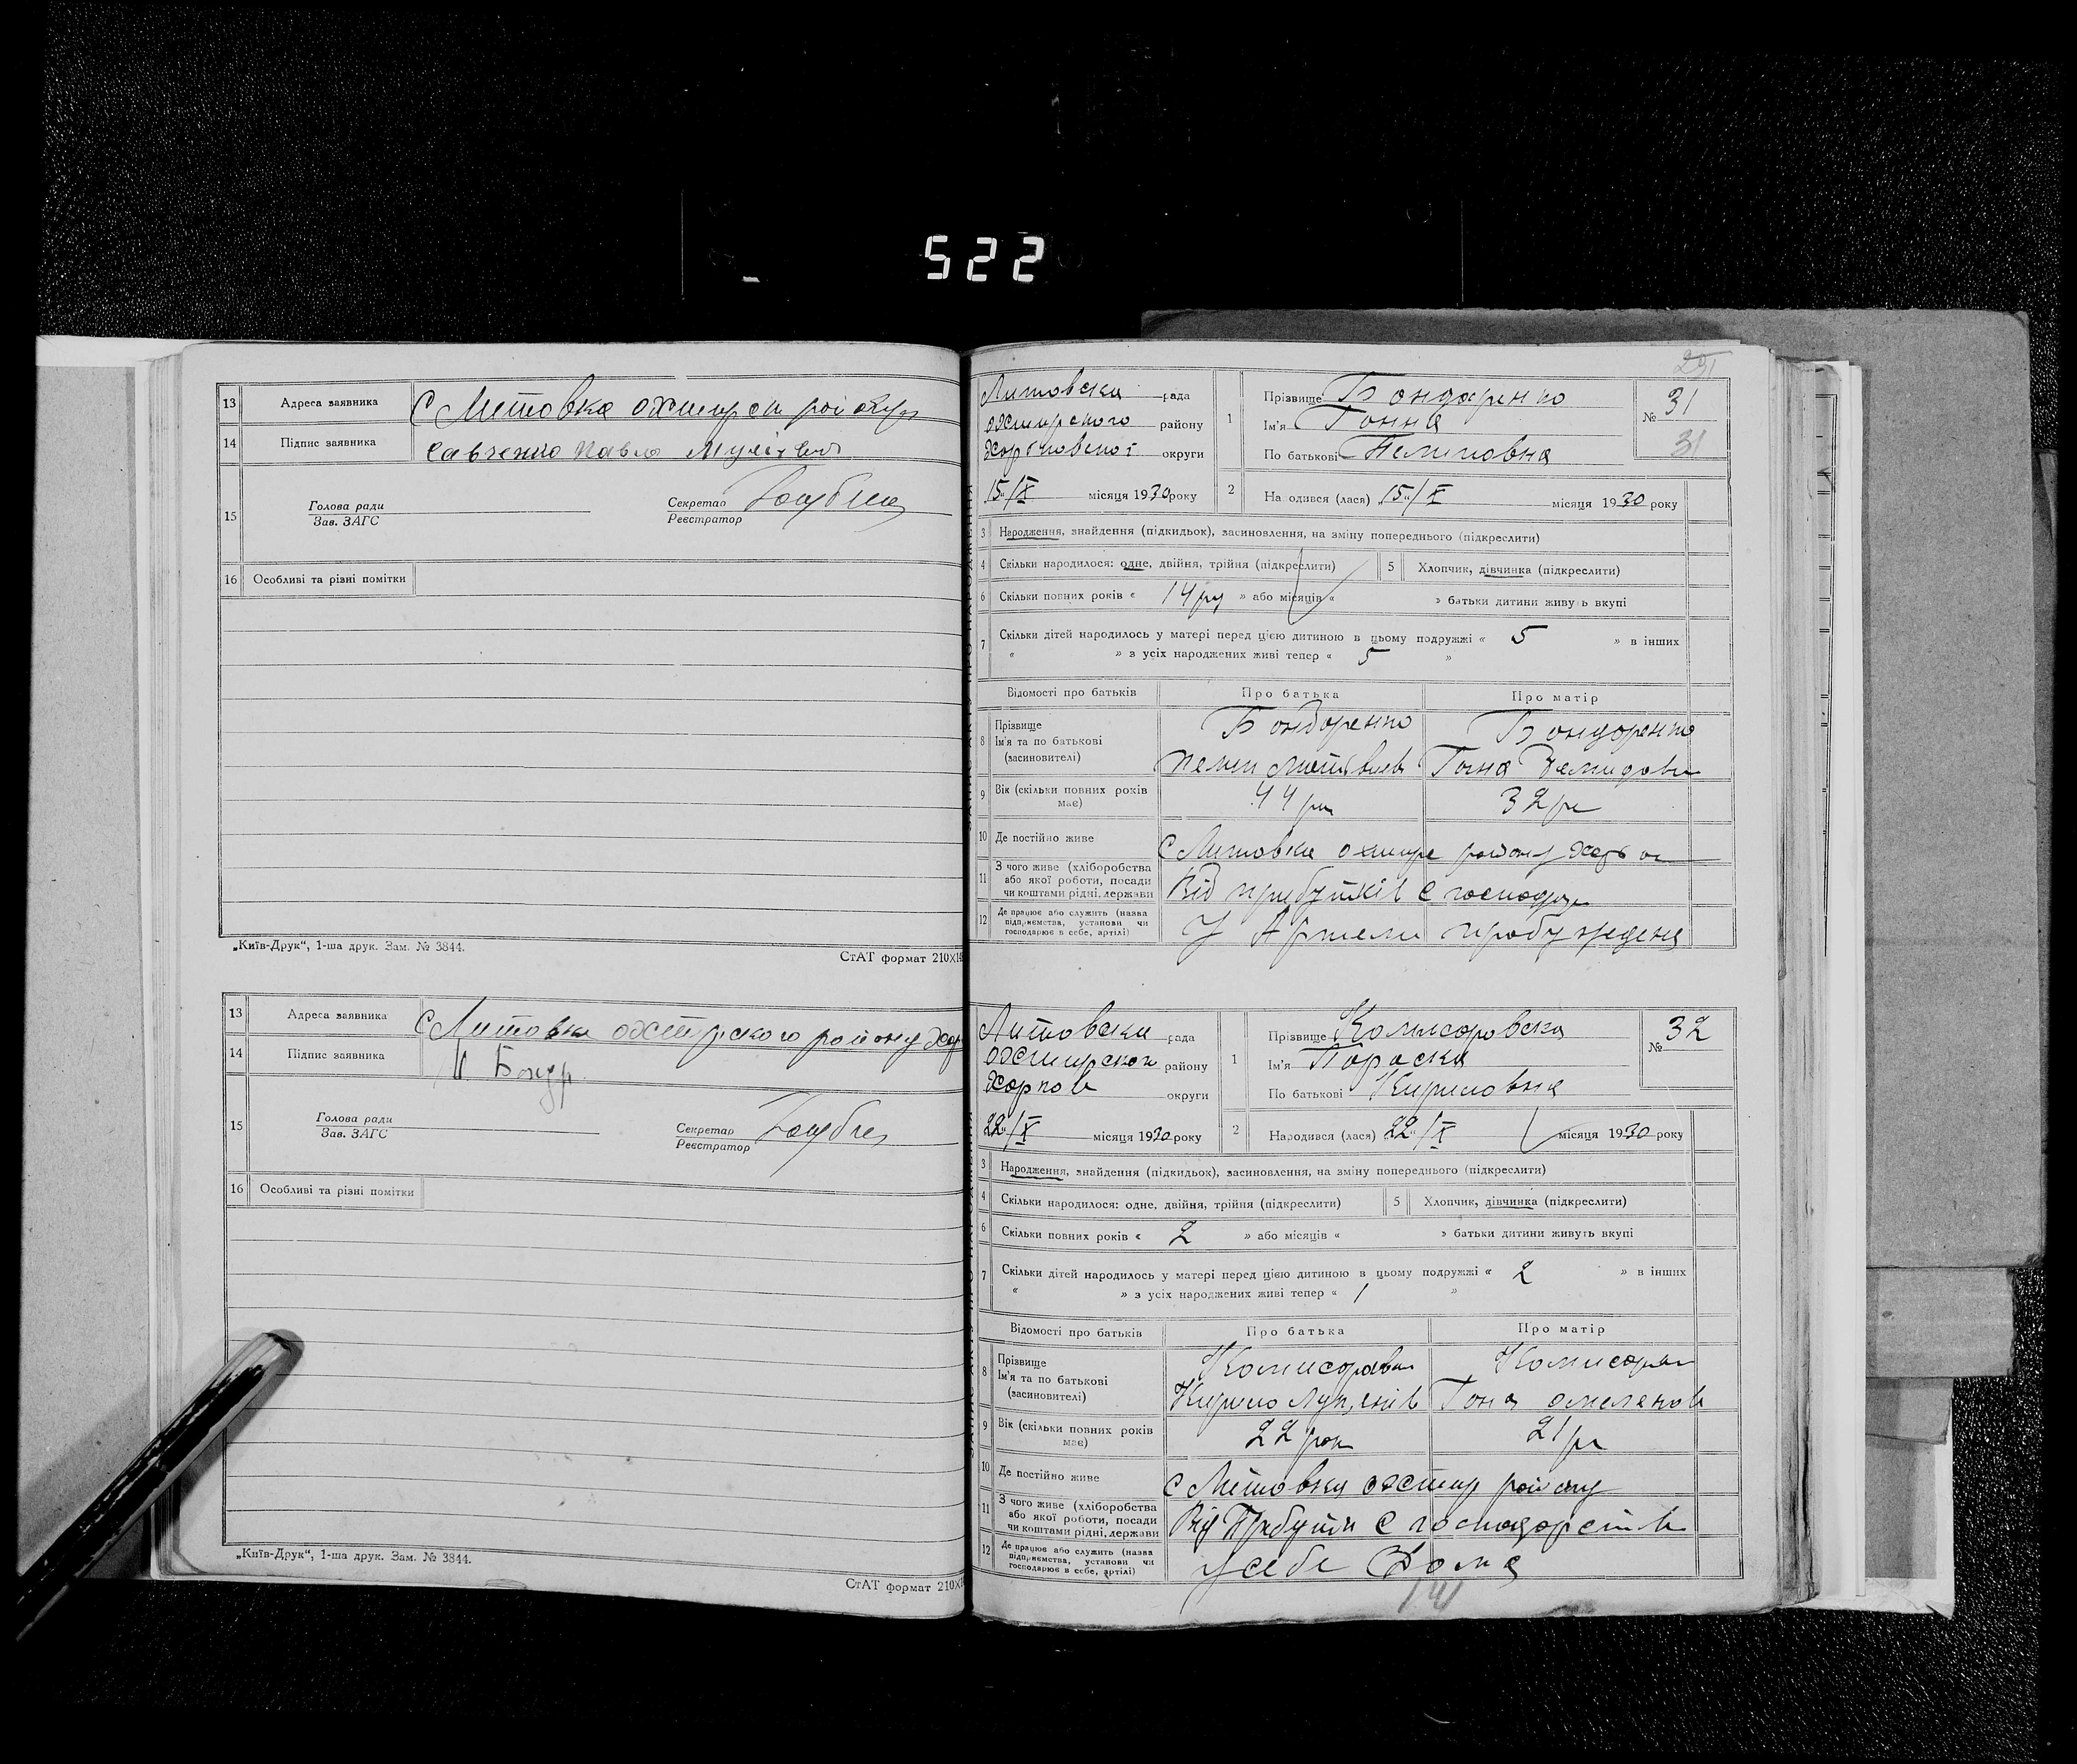 522
13 Адреса заявника С Литовка охтирск
14 Підпис заявника Савченко Павло
15 Голова ради Зав. ЗАГС Секретар Реєстратор
16 Особливі та різні помітки
„Київ-Друк“, 1-ша друк. Зам. № 3844.
СтАТ формат 210X
13 Адреса заявника С Литовка охтирского району
14 Підпис заявника Бондр
15 Голова ради Зав. ЗАГС Секретар Реєстратор
16 Особливі та різні помітки
„Київ-Друк“, 1-ша друк. Зам. № 3844.
СтАТ формат 210X
291
Литовска рада
охтирского району
округи
15/X місяця 1930 року
1 Прізвище Бондаренко
Ім'я Ганна
По батькові Пилиповна
№ 31
31
2 Народився (лася) 15/X місяця 1930 року
3 Народження, знайдення (підкидьок), засиновлення, на зміну попереднього (підкреслити)
4 Скільки народилося: одне, двійня, трійня (підкреслити) 5 Хлопчик, дівчинка (підкреслити)
6 Скільки повних років « 14 » або місяців « » батьки дитини живуть вкупі
7 Скільки дітей народилось у матері перед цією дитиною в цьому подружжі « 5 » в інших
« » з усіх народжених живі тепер « 5 »
Відомості про батьків Про батька Про матір
8 Прізвище Бондоренко Бондоренко
Ім'я та по батькові
(засиновителі)
9 Вік (скільки повних років має) 44 32
10 Де постійно живе С Литовка району
11 З чого живе (хліборобства або якої роботи, посади чи коштами рідні, держави Від прибутків с господ
12 Де працює або служить (назва підприємства, установи чи господарює в себе, артілі) У Артели
Литовска рада
району
округи
22/X місяця 1930 року
1 Прізвище Комисоровска
Ім'я Пораска
По батькові Кириловна
№ 32
2 Народився (лася) 22/X місяця 1930 року
3 Народження, знайдення (підкидьок), засиновлення, на зміну попереднього (підкреслити)
4 Скільки народилося: одне, двійня, трійня (підкреслити) 5 Хлопчик, дівчинка (підкреслити)
6 Скільки повних років « 2 » або місяців « » батьки дитини живуть вкупі
7 Скільки дітей народилось у матері перед цією дитиною в цьому подружжі « 2 » в інших
« » з усіх народжених живі тепер « 1 »
Відомості про батьків Про батька Про матір
8 Прізвище
Ім'я та по батькові Кирило
(засиновителі)
9 Вік (скільки повних років має) 22 рок 21
10 Де постійно живе С Литовка охтир району
11 З чого живе (хліборобства або якої роботи, посади чи коштами рідні, держави Від с господорств
12 Де працює або служить (назва підприємства, установи чи господарює в себе, артілі) у себе Дома